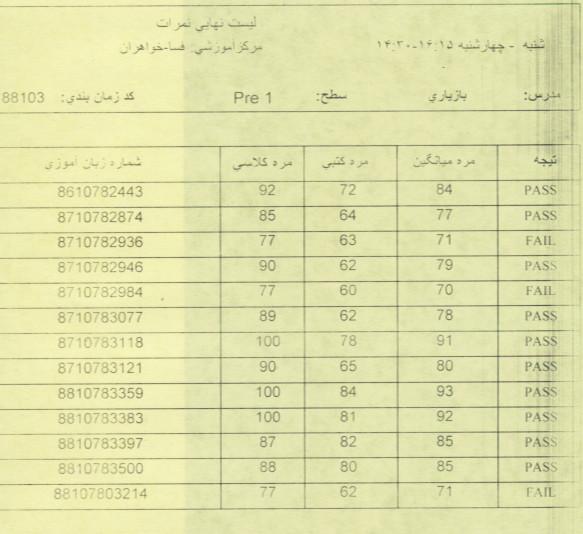 ليست نهايي نمرات
شنبه - چهارشنبه ۱۶:۱۵-۱۴:۳۰ مركزآموزشي: فسا-خواهران
مدرس: بازياري سطح: Pre 1 كد زمان بندي: 88103
تيجه مره ميانگين مره كتبي مره كلاسي شماره زبان آموزي
PASS 84 72 92 8610782443
PASS 77 64 85 8710782874
FAIL 71 63 77 8710782936
PASS 79 62 90 8710782946
FAIL 70 60 77 8710782984
PASS 78 62 89 8710783077
PASS 91 78 100 8710783118
PASS 80 65 90 8710783121
PASS 93 84 100 8810783359
PASS 92 81 100 8810783383
PASS 85 82 87 8810783397
PASS 85 80 88 8810783500
FAIL 71 62 77 88107803214